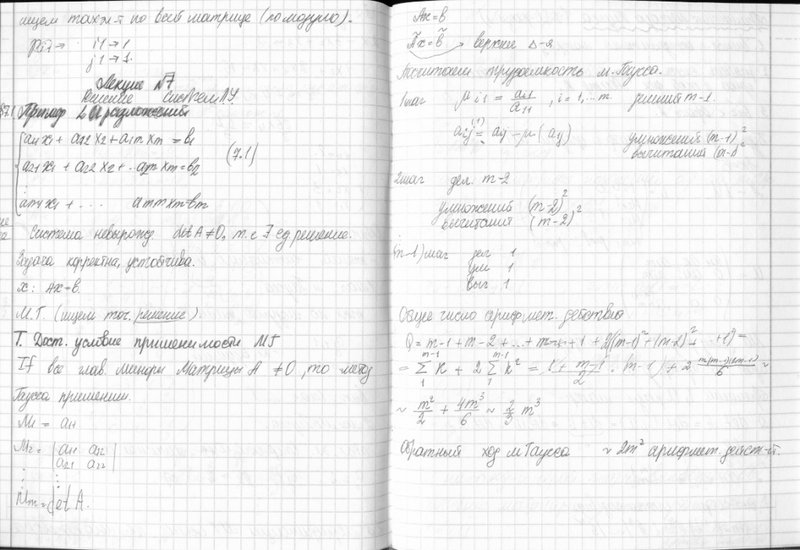 ищем так же по всей матрице (по модулю).
i1 → 1
j1 → 1.
Лекция №7
Решение систем ЛУ.
§7.1 Пример разложения
a11x1 + a12x2 + a1mxm = b1
a21x1 + a22x2 + ... a2mxm = b2 (7.1)
⋮
am1x1 + ... ammxm = bm
Система невырожд det A ≠ 0, т.е ∃ ед. решение.
Задача корректна, устойчива.
x: Ax = b.
М.Г. (ищем точ. решение).
Т. Дост. условие применимости МГ
If все глав. миноры Матрицы A ≠ 0, то метод
Гаусса применим.
M1 = a11
M2 = | a11 a12 |
| a21 a22 |
⋮
Mm = det A.
Ax = b
Ãx = b̃ → верхне Δ-я
Посчитаем трудоемкость м. Гаусса.
1 шаг μi1 = ai1/a11, i = 1, ... m m-1.
aij(1) = aij - μ(aij) умножений (m-1)²
вычитаний (m-1)²
2 шаг дел. m-2
умножений (m-2)²
вычитаний (m-2)²
(m-1) шаг дел 1
ум 1
выч 1
Общее число арифмет. действий
Q = m-1 + m-2 + ... + + 1 + 2((m-1)² + (m-2)² + ... + 1²) =
= Σ₁^(m-1) k + 2 Σ₁^(m-1) k² = (1 + m-1)/2 · (m-1) + 2 ~
~ m²/2 + 4m³/6 ~ 2/3 m³
Обратный ход м Гаусса ~ 2m² арифмет. действ-й.